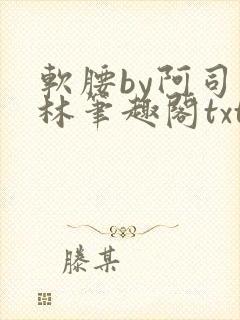 軟腰by阿司
林笔趣閣txt
滕某